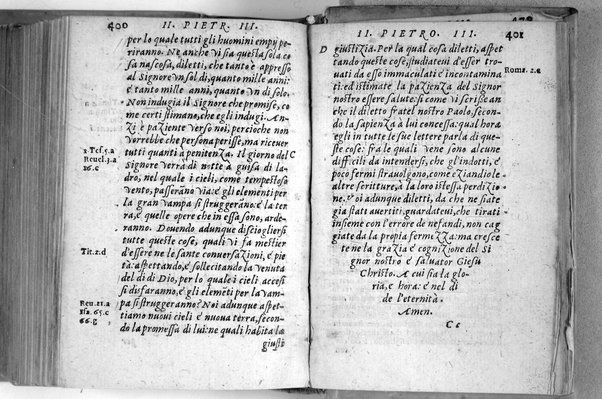 400 II. PIETR. III.
per lo quale tutti gli huomini empij pe
riranno. Ne anche vi sia questa sola co
sa nascosa, diletti, che tanto è appresso
al Signore vn sol di, quanto mille anni:
è tanto mille anni, quanto vn dì solo.
Non indugia il Signore che promise, co
me certi stimano, che egli indugi. An-
zi è paziente verso noi, percioche non
vorrebbe che persona perisse, ma ricever
tutti quanti a penitenza. Il giorno del C
2 Tes.5.a
Reuel.3.a
16.c
Signore verrà di notte à guisa di la-
dro, nel quale i cieli, come tempestoso
vento, passeranno via: è gli elementi per
la gran vampa si struggerano: è la ter
ra, è quelle opere che in essa sono, arde-
ranno. Douendo adunque disciogliersi
tutte queste cose, quali vi fa mestier
Tit.2.d
d'essere ne le sante conuersazioni, è pie
tà: aspettando, è sollecitando la venuta
del dì di Dio, per lo quale i cieli accesi
si disfaranno, è gli elemēti per la vam-
Reu.21.a
Isa.65.c
66.g
pa si struggeranno? Noi adunque aspet-
tiamo nuoui cieli è nuoua terra, secon-
do la promessa di lui: ne quali habita la
giusti
II. PIETRO. III. 401
D giustizia. Per la qual cosa diletti, aspet
tando queste cose, studiateui d'esser tro
Rom. 2.c
uati da esso immaculati è incontamina
ti: ed istimate la pazienza del Signor
nostro essere salute: si come vi scrisse an
che il diletto fratel nostro Paolo, secon-
do la sapienza à lui concessa: qual hora
egli in tutte le sue lettere parla di que-
ste cose: fra le quali vene sono alcune
difficili da intendersi, che gl'indotti, è
poco fermi strauolgono, come eziandio le
altre scritture, à la loro istessa perdizio
ne. è voi adunque diletti, da che ne siate
gia stati auertiti, guardateui, che tirati
insieme con l'errore de nefandi, non cag
giate da la propia fermezza: ma cresce
te ne la grazia è cognizione del Si
gnor nostro è saluator Giesu
Christo. A cui sia la glo-
ria, è hora: è nel dì
de l'eternità.
Amen.
Cc